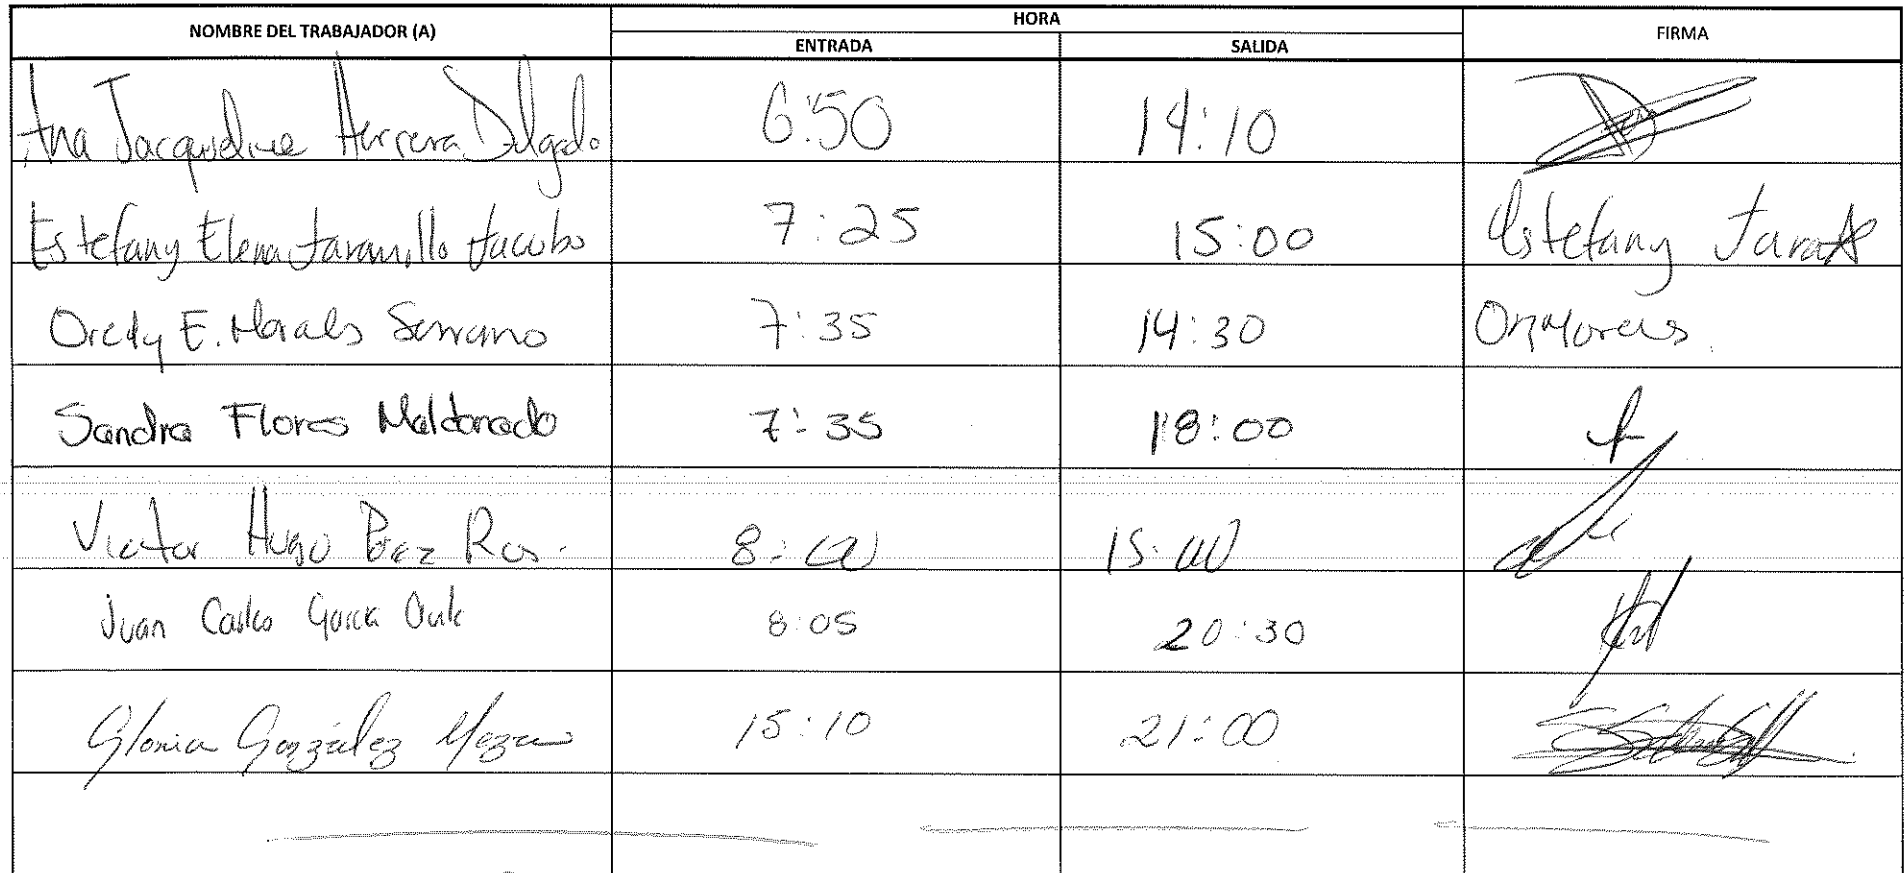 NOMBRE DEL TRABAJADOR (A) HORA FIRMA
ENTRADA SALIDA
Ana Jacqueline Herrera Delgado 6:50 14:10
Estefany Elena Jaramillo Jacobo 7:25 15:00 Estefany
Oredy E. Morales Serrano 7:35 14:30
Sandra Flores Maldonado 7:35 18:00
Victor Hugo 8:00 15:00
Juan Carlos García 8:05 20:30
Gloria González Meza 15:10 21:00